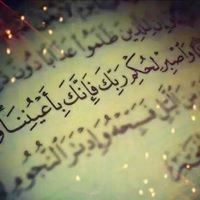 لِلَّذِينَ ظَلَمُوا عَذَابًا دُونَ
وَاصْبِرْ لِحُكْمِ رَبِّكَ فَإِنَّكَ بِأَعْيُنِنَا
الَّيْلِ فَسَبِّحْهُ وَإِدْبَٰرَ النُّجُومِ